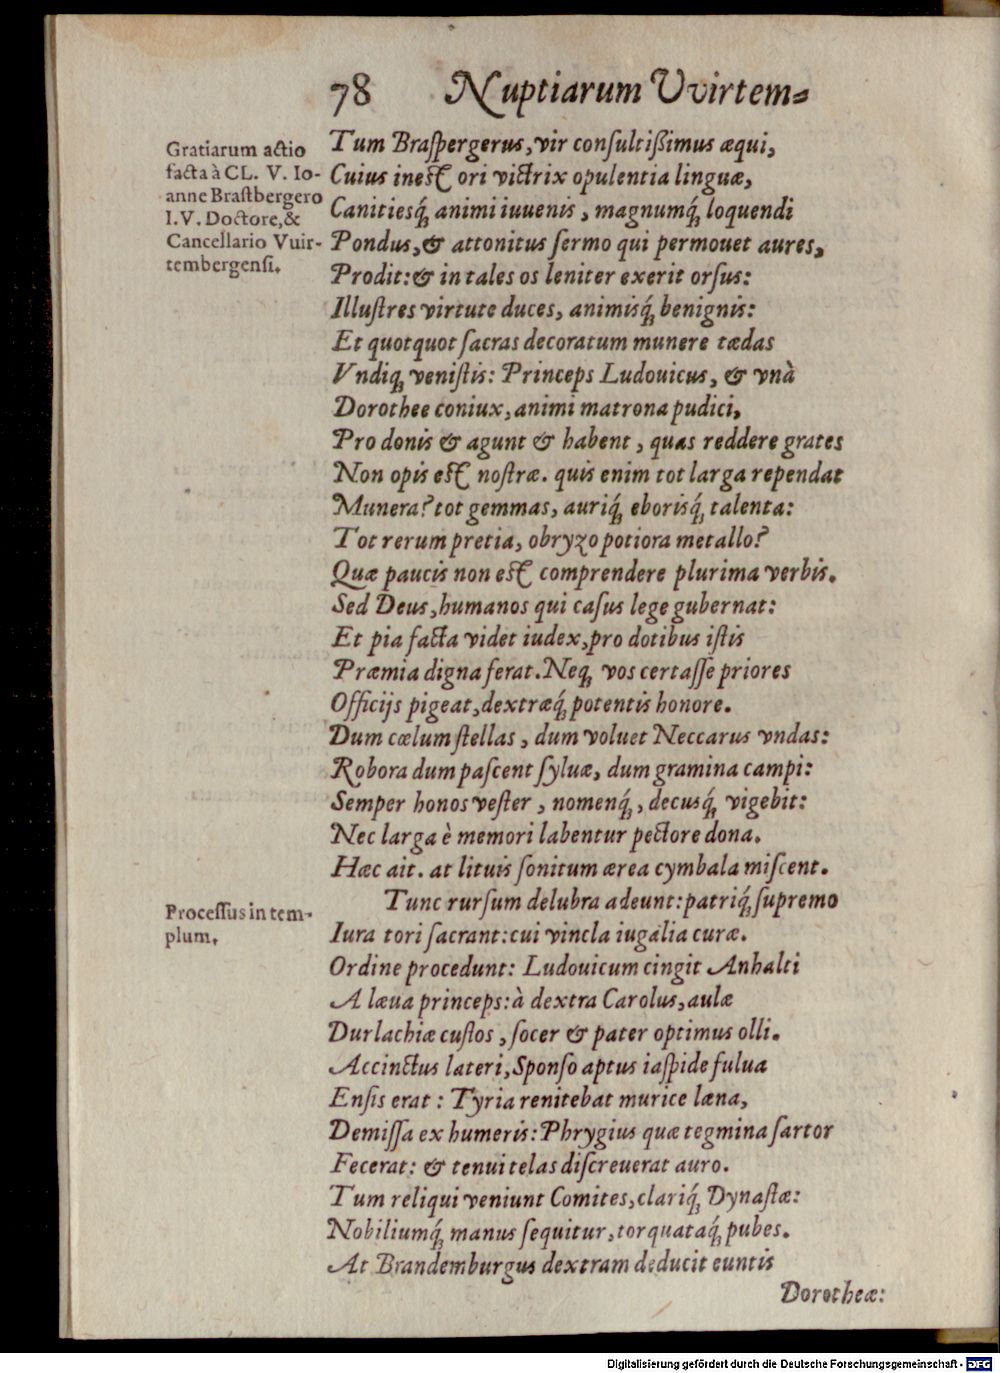 78 Nuptiarum Vvirtem⸗
Gratiarum actio
facta à CL. V. Io-
anne Brastbergero
I.V. Doctore,&
Cancellario Vuir-
tembergensi.
Tum Braspergerus, vir consultißimus æqui,
Cuius inest ori victrix opulentia linguæ,
Canitiesq́; animi iuuenis, magnumq́; loquendi
Pondus, & attonitus sermo qui permouet aures,
Prodit: & in tales os leniter exerit orsus:
Illustres virtute duces, animisq́; benignis:
Et quotquot sacras decoratum munere tædas
Vndiq; venistis: Princeps Ludouicus, & vnà
Dorothee coniux, animi matrona pudici,
Pro donis & agunt & habent, quas reddere grates
Non opis est nostræ. quis enim tot larga rependat
Munera? tot gemmas, auriq́; eborisq́; talenta:
Tot rerum pretia, obryzo potiora metallo?
Quæ paucis non est comprendere plurima verbis.
Sed Deus, humanos qui casus lege gubernat:
Et pia facta videt iudex, pro dotibus istis
Præmia digna ferat. Neq; vos certasse priores
Officijs pigeat, dextræq́; potentis honore.
Dum cœlum stellas, dum voluet Neccarus vndas:
Robora dum pascent syluæ, dum gramina campi:
Semper honos vester, nomenq́;, decusq́; vigebit:
Nec larga è memori labentur pectore dona.
Hæc ait. at lituis sonitum ærea cymbala miscent.
Processus in tem-
plum.
Tunc rursum delubra adeunt: patriq́; supremo
Iura tori sacrant: cui vincla iugalia curæ.
Ordine procedunt: Ludouicum cingit Anhalti
A læua princeps: à dextra Carolus, aulæ
Durlachiæ custos, socer & pater optimus olli.
Accinctus lateri, Sponso aptus iaspide fulua
Ensis erat: Tyria renitebat murice læna,
Demissa ex humeris: Phrygius quæ tegmina sartor
Fecerat: & tenui telas discreuerat auro.
Tum reliqui veniunt Comites, clariq́; Dynastæ:
Nobiliumq́; manus sequitur, torquataq́; pubes.
At Brandemburgus dextram deducit euntis
Dorotheæ:
Digitalisierung gefördert durch die Deutsche Forschungsgemeinschaft - DFG